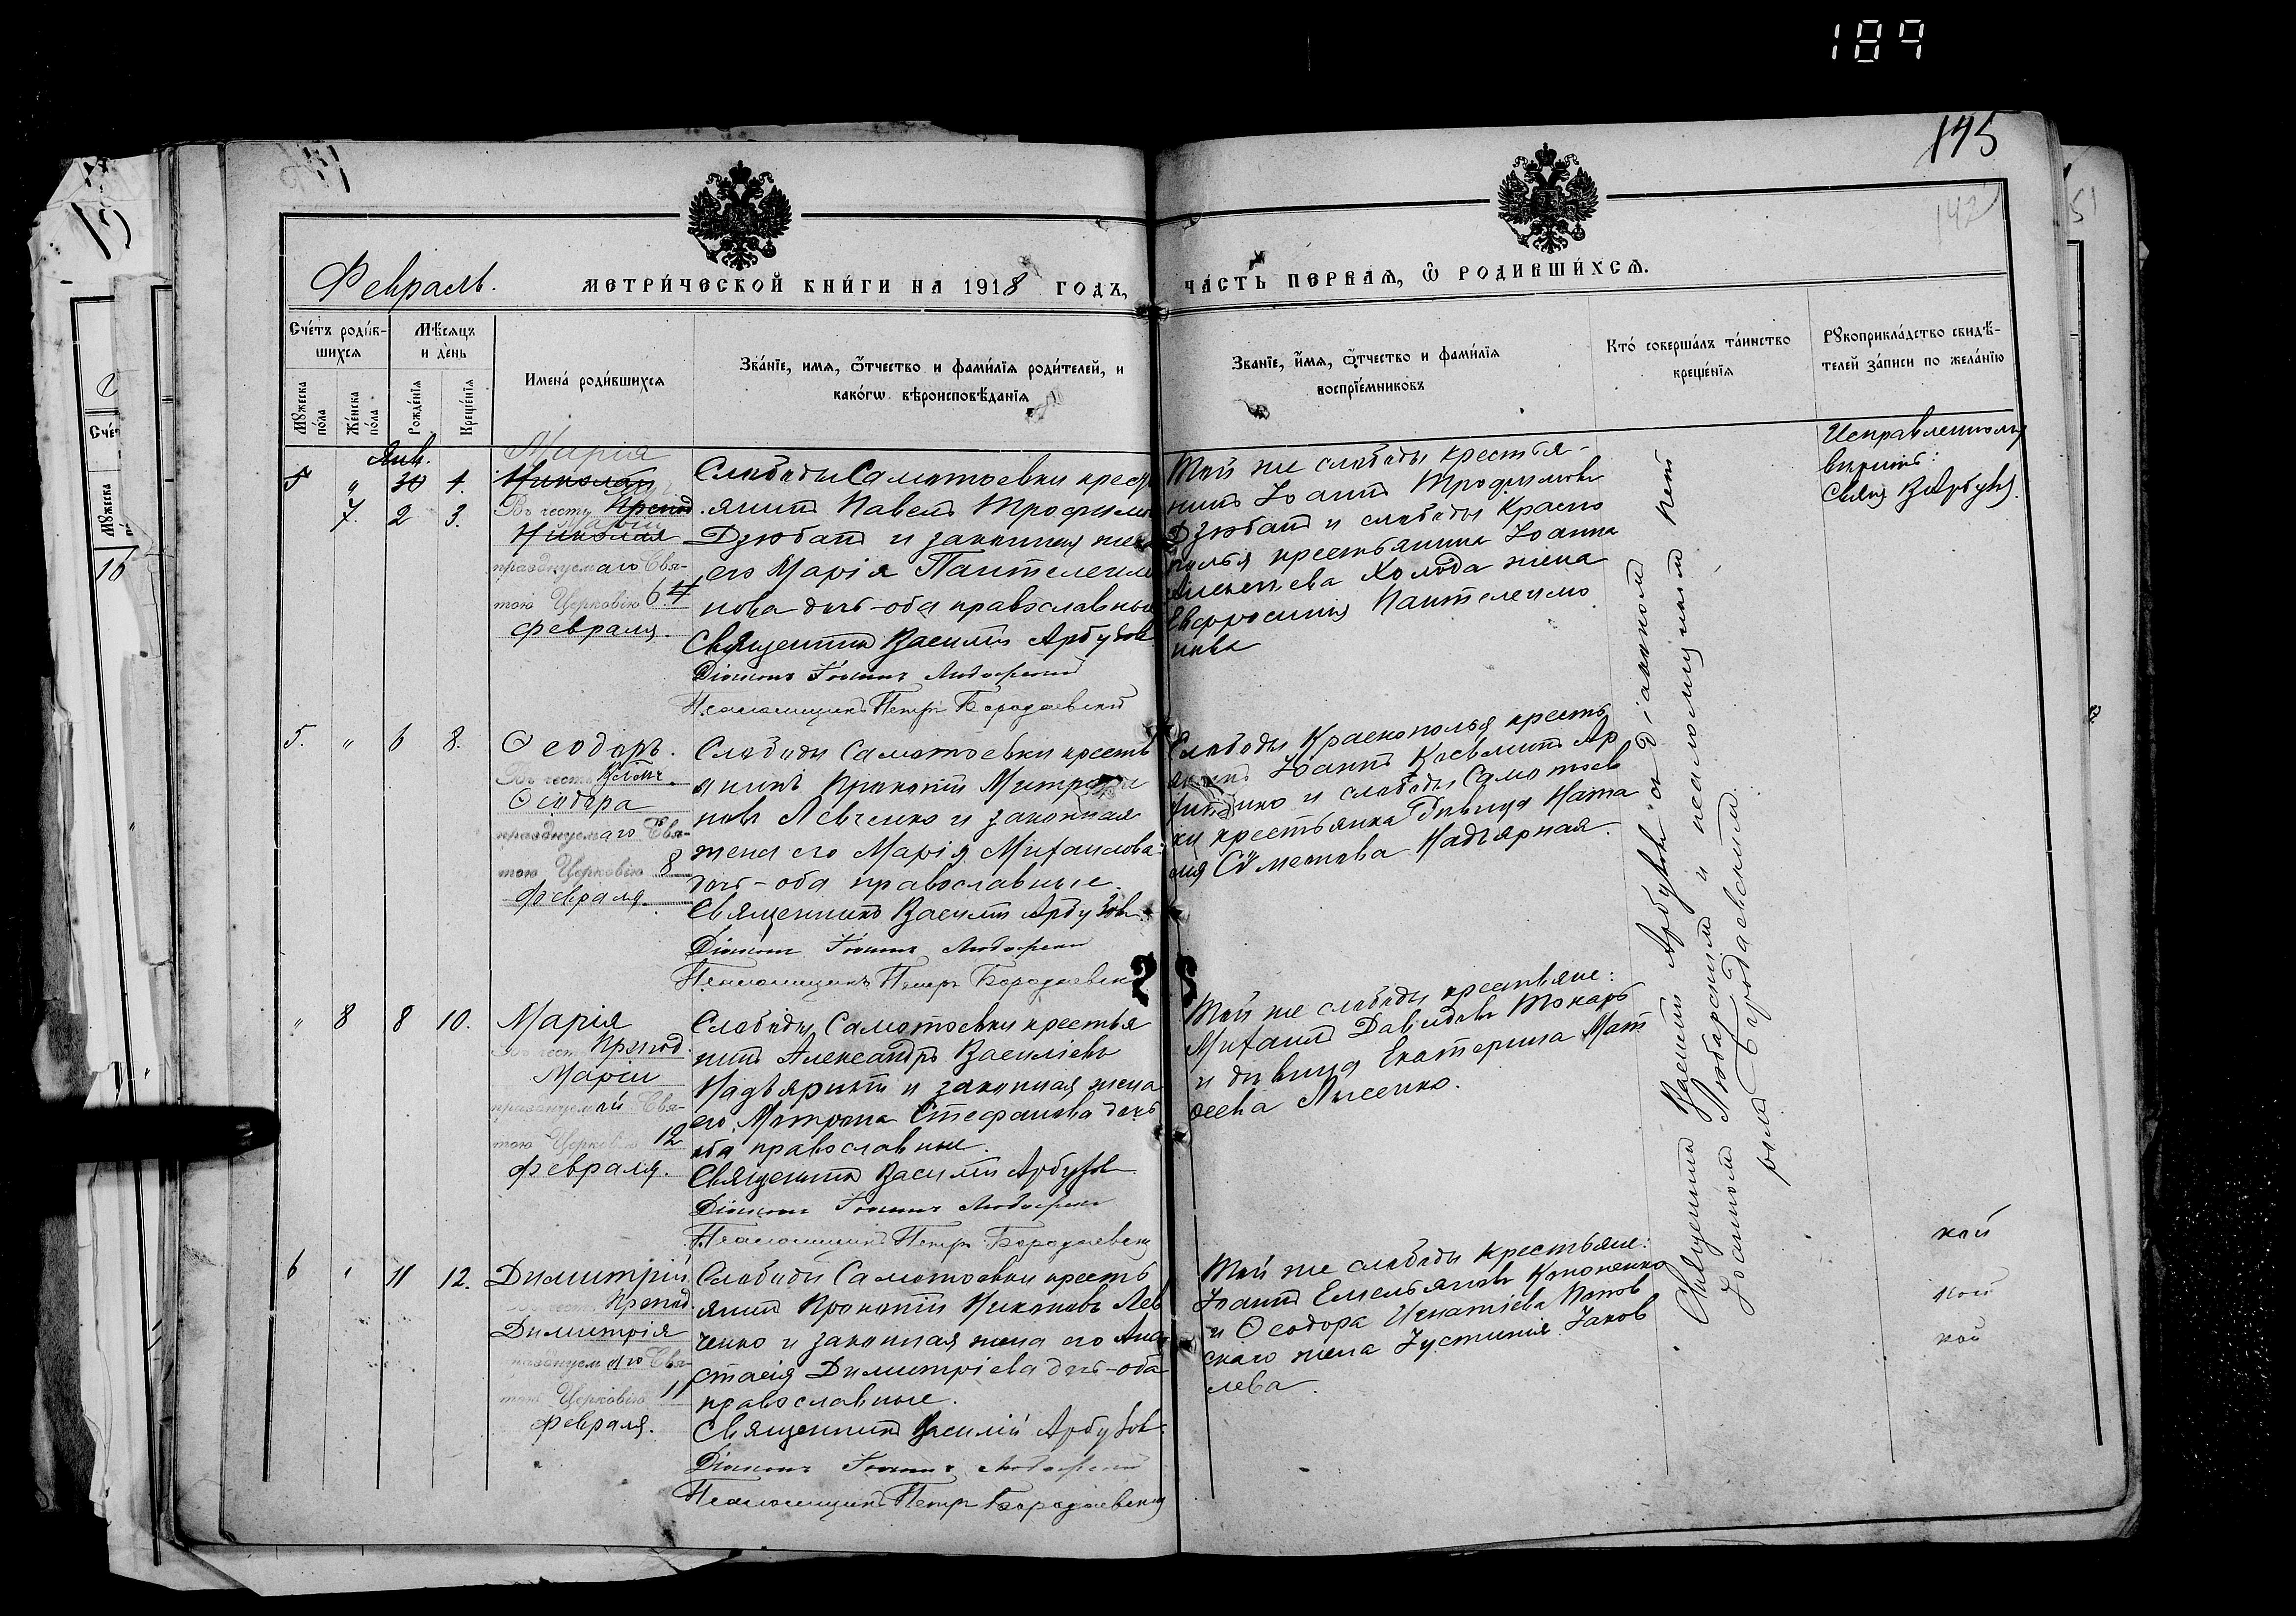 189
145
142
Февраль.
МЕТРИ́ЧЕСКОЙ КНИ́ГИ НА 1918 ГОДЪ,
ЧА́СТЬ ПЕРВАЯ, Ѿ РОДИВШИ́ХСЯ.
Сче́тъ роди́в-
шихся
Мѣсяцъ
и де́нь
Мꙋжеска
по́ла
Же́нска
по́ла
Рожде́нія
Креще́нія
Имена́ роди́вшихся
Зва́ніе, имя, ѻ҆́тчество и фами́лія роди́телей, и
како́гѡ вѣроисповѣ́данія
Зва́ніе, и҆́мя, ѻ҆́тчество и фами́лія
воспріе́мниковъ
Кто́ соверша́лъ та́инство
креще́нія
Рꙋкоприкла́дство свидѣ́-
телей за́писи по жела́нію
Янв.
5 " 30 1.
7. 2 3.
Марія
Николай
Въ честь Препод.
Маріи
Николая
празднуемаго Свя-
тою Церковію 6 4
февраля.
Слободы Самотоевки крест
янинъ Павелъ Трофимо
Дзюбанъ и законная жена
его Марія Пантелеимо
нова дочь-оба православные
Священникъ Василій Арбузовъ
Діаконъ Іоаннъ Любарскій
Псаломщикъ Петръ Бородаевскій
Той же слободы крестья-
нинъ Іоаннъ Трофимовъ
Дзюбанъ и слободы Красно
полья крестьянина Іоанна
Алексѣева Холода жена
Евфросинія Пантелеимо
нова
Исправленному
вѣрить:
Свящ. В. Арбузов.
5. " 6 8.
Ѳеодоръ.
Въ честь Велмч.
Ѳеодора
празднуемаго Свя-
тою Церковію 8
февраля.
Слободы Самотоевки кресть
янинъ Прокопій Митрофа
новъ Левченко и законная
жена его Марія Михаилова
дочь-оба православные.
Священникъ Василій Арбузовъ
Діаконъ Іоаннъ Любарскій
Псаломщикъ Петръ Бородаевскій
Слободы Краснополья кресть
янинъ Іоаннъ
и слободы Самотоев
ки крестьянка дѣвица Ната
лія Надъярная.
" 8 8 10.
Марія
Въ честь Препод.
Маріи
празднуемой Свя-
тою Церковію 12
февраля.
Слободы Самотоевки крестья
нинъ Александръ Василіевъ
Надъярный и законная жена
его Матрона Стефанова дочь
оба православные.
Священникъ Василій Арбузовъ
Діаконъ Іоаннъ Любарскій
Псаломщикъ Петръ Бородаевскій
Той же слободы крестьяне:
Михаилъ Давидовъ Токарь
и дѣвица Екатерина Мат
ѳеева Лысенко.
6 " 11 12.
Димитрій
Въ честь Препод.
Димитрія
празднуемаго Свя-
тою Церковію 11
февраля.
Слободы Самотоевки кресть
янинъ Прокопій Никоновъ Лев
ченко и законная жена его Ана
стасія Димитріева дочь-оба
православные.
Священникъ Василій Арбузовъ
Діаконъ Іоаннъ Любарскій
Псаломщикъ Петръ Бородаевскій
Той же слободы крестьяне:
Іоаннъ Емельяновъ Кононенко
и Ѳеодора Игнатіева Попов
скаго жена Іустинія Іаков
лева.
Священникъ Василій Арбузовъ съ діакономъ
Іоанномъ Любарскимъ и псаломщикомъ Пет
ромъ Бородаевскимъ.
кой
кой
кой